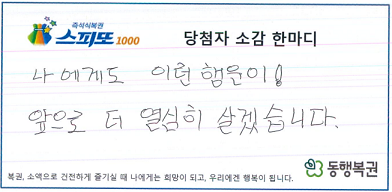 즉석식복권
스피또 1000
당첨자 소감 한마디
나에게도 이런 행운이!
앞으로 더 열심히 살겠습니다.
복권, 소액으로 건전하게 즐기실 때 나에게는 희망이 되고, 우리에겐 행복이 됩니다.
동행복권